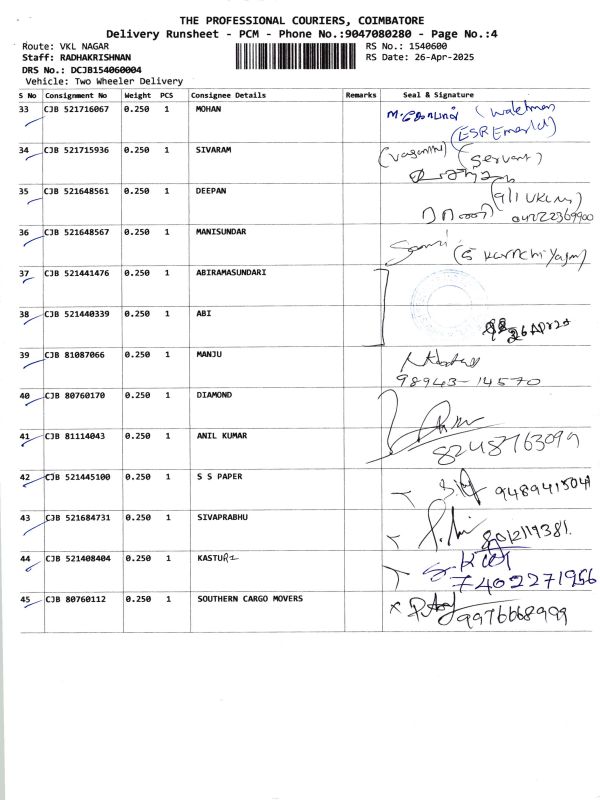 THE PROFESSIONAL COURIERS, COIMBATORE
Delivery Runsheet - PCM - Phone No.:9047080280 - Page No.:4
Route: VKL NAGAR RS No.: 1540600
Staff: RADHAKRISHNAN RS Date: 26-Apr-2025
DRS No.: DCJB154060004
Vehicle: Two Wheeler Delivery
S No Consignment No Weight PCS Consignee Details Remarks Seal & Signature
33 CJB 521716067 0.250 1 MOHAN (watchman
(ESR Emerald)
34 CJB 521715936 0.250 1 SIVARAM (Vasanthi) (Servant)
35 CJB 521648561 0.250 1 DEEPAN (9/1 VKL
04222369900
36 CJB 521648567 0.250 1 MANISUNDAR (5
37 CJB 521441476 0.250 1 ABIRAMASUNDARI
38 CJB 521440339 0.250 1 ABI 26 APR 25
39 CJB 81087066 0.250 1 MANJU
98943-14570
40 CJB 80760170 0.250 1 DIAMOND
41 CJB 81114043 0.250 1 ANIL KUMAR 8248763099
42 CJB 521445100 0.250 1 S S PAPER 9489415041
43 CJB 521684731 0.250 1 SIVAPRABHU
44 CJB 521408404 0.250 1 KASTURI
7402271956
45 CJB 80760112 0.250 1 SOUTHERN CARGO MOVERS
9976668999